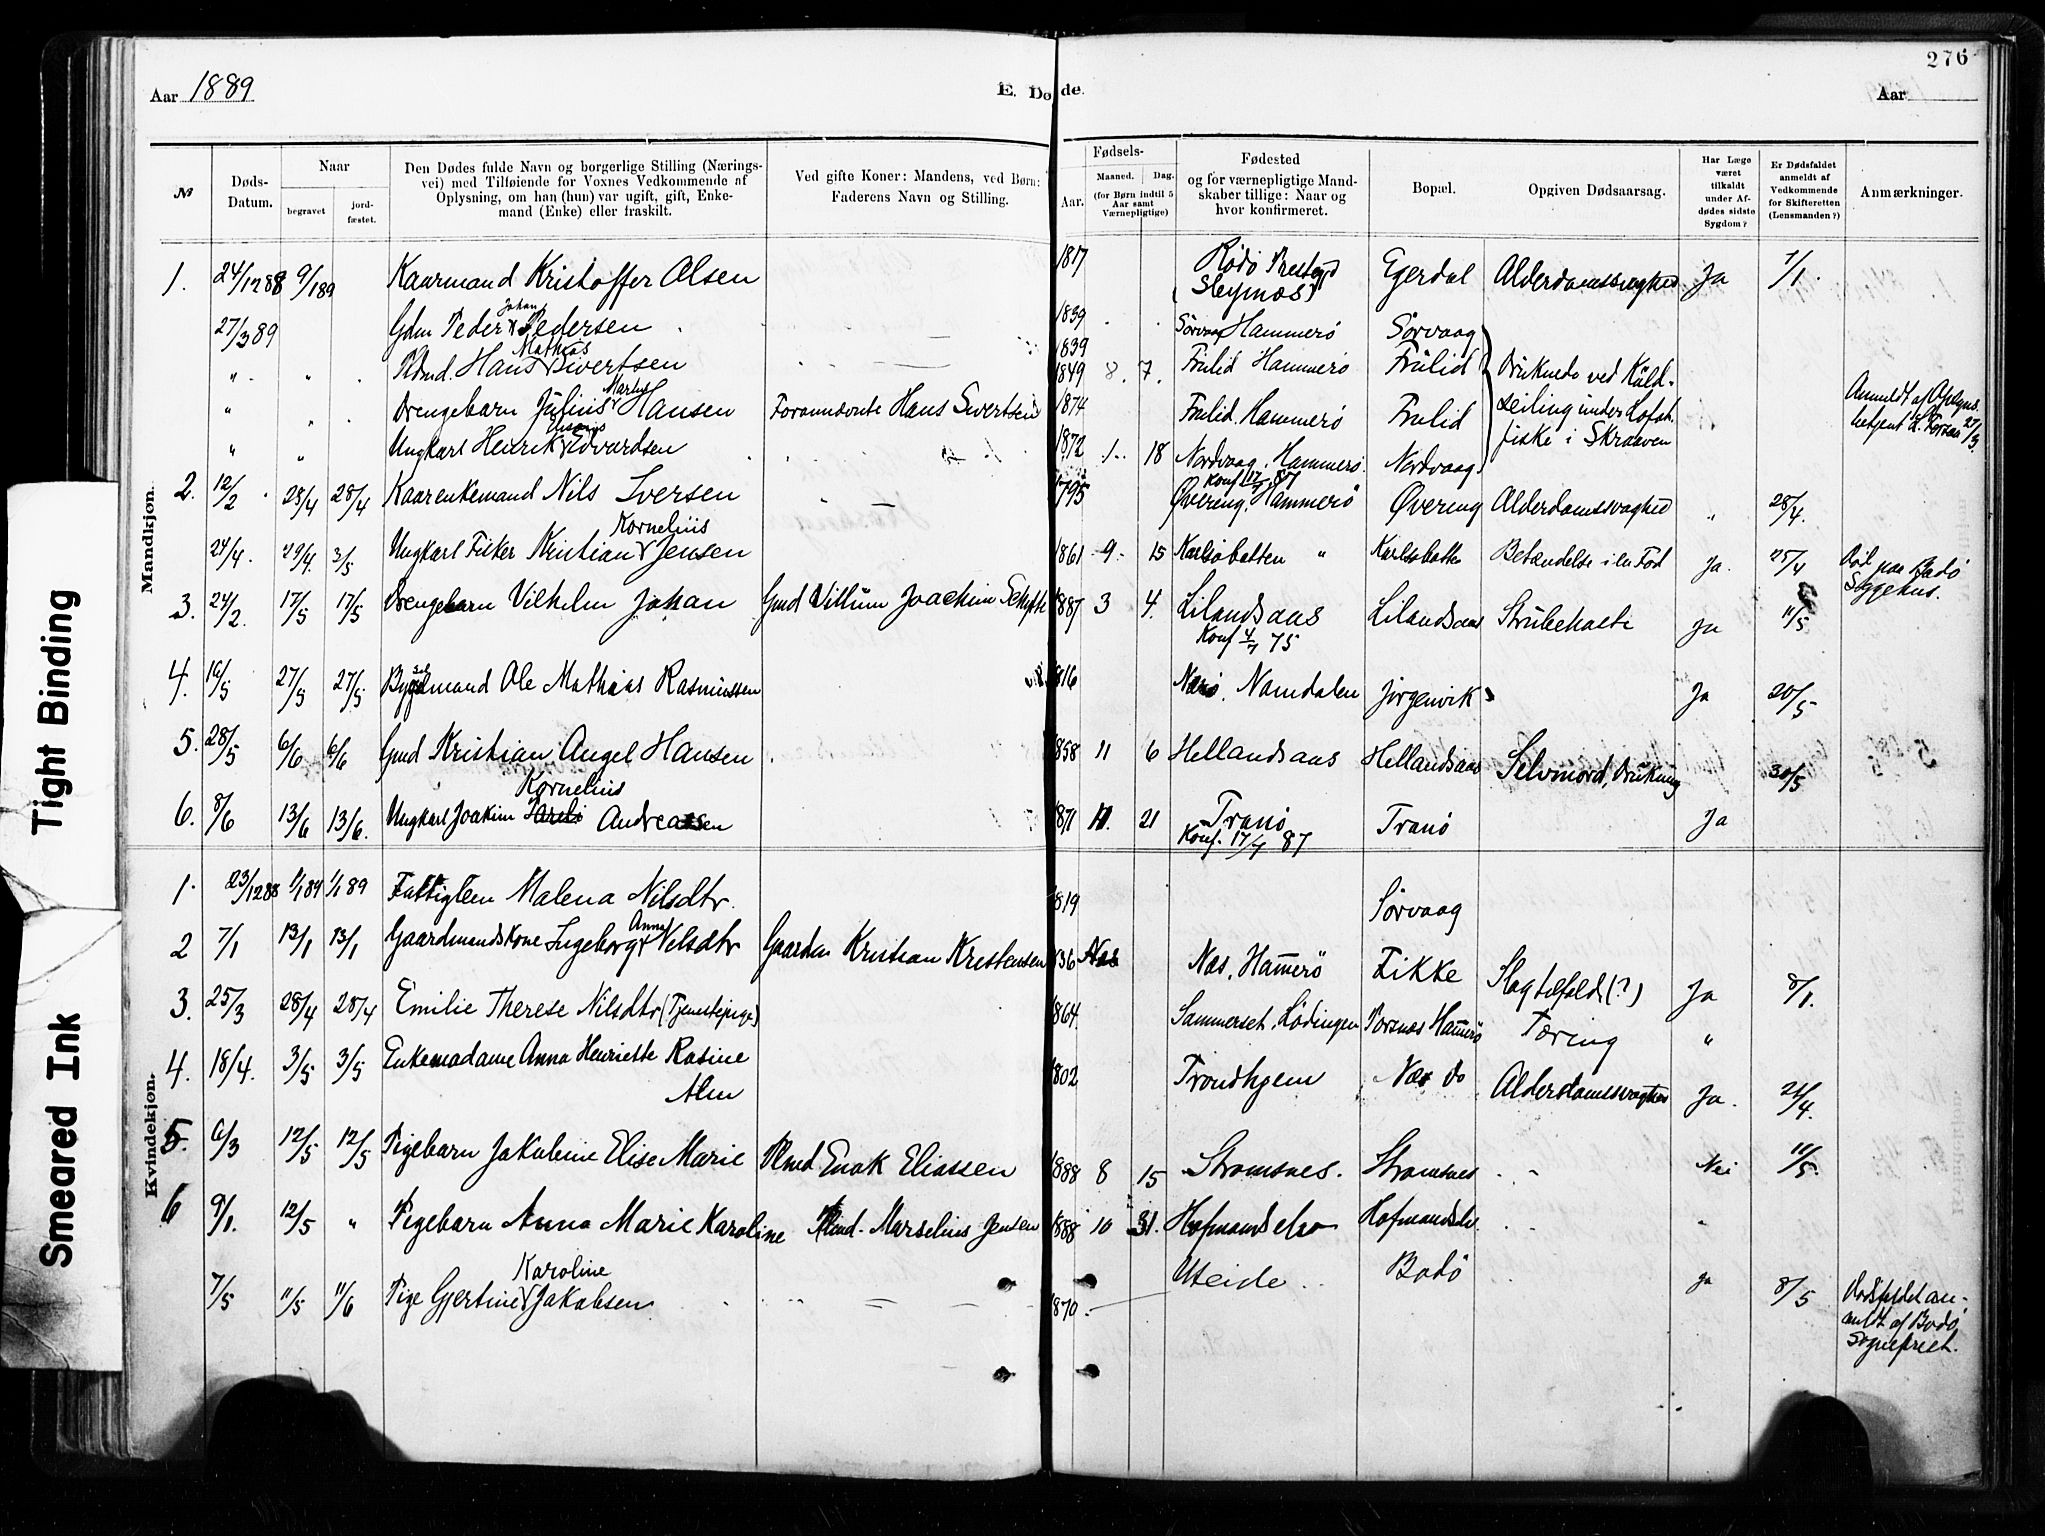 276
Aar 1889
E. Døde.
Aar
No
Døds-Datum.
Naar
begravet
jord-fæstet.
Den Dødes fulde Navn og borgerlige Stilling (Nærings-
vei) med Tilføiende for Voxnes Vedkommende af
Oplysning, om han (hun) var ugift, gift, Enke-
mand (Enke) eller fraskilt.
Ved gifte Koner: Mandens, ved Børn:
Faderens Navn og Stilling.
Fødsels-
Aar.
Maaned.
Dag.
(for Børn indtil 5
Aar samt
Værnepligtige)
Fødested
og for værnepligtige Mand-
skaber tillige: Naar og
hvor konfirmeret.
Bopæl.
Opgiven Dødsaarsag.
Har Læge
været
tilkaldt
under Af-
dødes sidste
Sygdom?
Er Dødsfaldet
anmeldt af
Vedkommende
for Skifteretten
(Lensmanden?)
Anmærkninger.
Mandkjøn.
1. 24/12 88 9/1 89 Kaarmand Kristoffer Olsen 1817 Rødø Prestegd Egerdal Alderdomssvaghed Ja 7/1.
27/3 89 Gdm Peder Johan Pedersen 1839 Sørvaag Hammerø Sørvaag
1839
" Hans Mathias Sivertsen 1849 8. 7. Frulid Hammerø Frulid Druknede ved Kuld-
" Drengebarn Julius Marius Hansen Forannævnte Hans Sivertsen 1874 Frulid. Hammerø Frulid seiling under Lofot-
fiske i Skraaven
" " Ungkarl Henrik Edvardsen 1872 1. 18 Nordvaag. Hammerø. Nordvaag
Konf 17/7 87
2. 12/2 28/4 28/4 Kaarenkemand Nils Iversen 1795 Øvereng. Hammerø Øvereng Alderdomssvaghed " 28/4.
24/4. 29/4. 3/5 Ungkarl Fisker Kristian Kornelius Jensen 1861 9. 15 Karlsøbatten " Karlsøbatten Betændelse i en Fod Ja. 25/4 Død paa Bodø
Sygehus.
3. 24/2. 17/5 17/5 Drengebarn Vilhelm Johan Gmd Villum Joachim 1887 3 4. Lilandsaas Lilandsaas Strubehoste Ja 11/5
Konf 4/7 75
4. 16/5 27/5 27/5 Ole Mathias Rasmussen 1816 Nærø. Namdalen Jørgenvik Ja 20/5
5. 28/5 6/6 6/6 Gmd Kristian Angel Hansen 1858 11 6 Hellandsaas Hellandsaas Selvmord, Drukning 30/5
6. 8/6 13/6 13/6. Ungkarl Joakim Kornelius Andreassen 1871 11. 21 Tranø Tranø Ja
Konf. 17/7 87
Kvindekjøn.
1. 23/12 88 1/1 89 1/1 89 Fattiglem Malena Nilsdtr. 1819 Sørvaag
2 7/1 13/1 13/1 Gaardmandskone Ingeborg Anna Nilsdtr Gaardm Kristian Kristensen 1836 Næs. Hamerø Fikke Slagtilfælde (?) Ja 8/1.
3. 25/3 28/4 28/4 Emilie Therese Nilsdtr (Tjenestepige) 1864 Sammerset, Lødingen Hamerø Tæring "
4. 18/4. 3/5 3/5 Enkemadame Anna Henriette Rasine
Alm 1802 Trondhjem Næs do Alderdomssvaghed Ja. 24/4.
5. 6/3 12/5 12/5 Pigebarn Jakobine Elise Marie Enok Eliassen 1888 8 15 Strømsnes. Strømsnes Nei 11/5.
6 9/1. 12/5 " Pigebarn Anna Marie Karoline Marselius Jensen 1888 10 31. Hofmandselv Hofmandselv
7/5 11/5 11/6 Pige Gjertine Karoline Jakobsen 1870 Uteide Bodø ja 8/5 Dødsfaldet an-
meldt af Bodø
Sognepræst.
Tight Binding
Smeared Ink